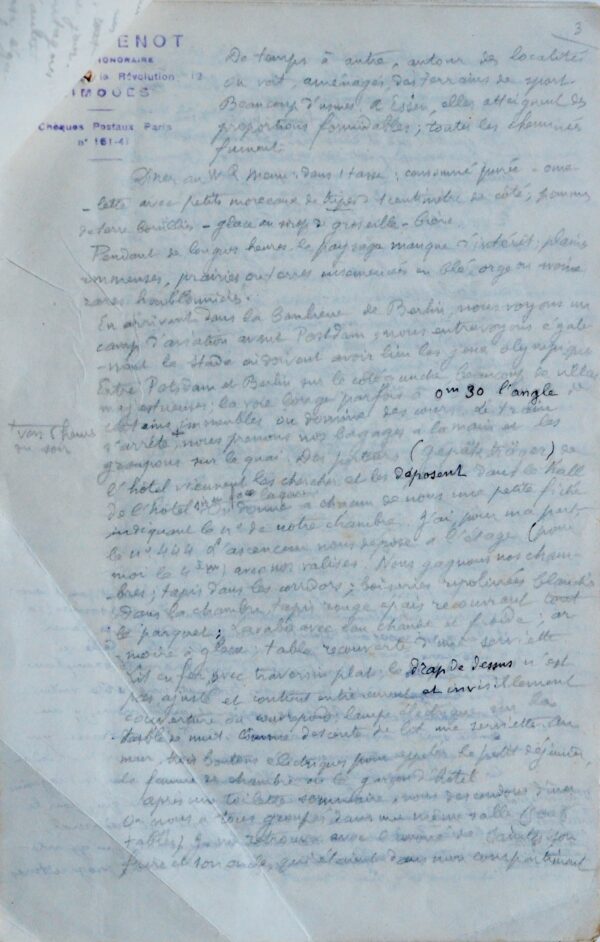 3
ENOT
HONORAIRE
la Révolution, 12
LIMOGES
Chèques Postaux Paris
n° 161-41
De temps à autre, autour des localités
on voit, aménagés, des terrains de sport.
Beaucoup d'usines, à Essen, elles atteignent des
proportions formidables; toutes les cheminées
fument.
Dîner au W.R. Menu: dans 1 tasse, consommé purée - ome-
-lette avec petits morceaux de 1 centimètre de côté, pommes
de terre bouillies - glace au sirop de groseille - bière.
Pendant de longues heures, le paysage manque d'intérêt; plaines
immenses, prairies ou terres ensemencées en blé, orge ou avoine
rares houblonnières.
En arrivant dans la banlieue de Berlin, nous voyons un
camp d'aviation avant Postdam; nous entrevoyons égale-
-ment le Stade où doivent avoir lieu les jeux olympiques
Entre Potsdam et Berlin sur le côté gauche beaucoup de villas
la voie longe parfois à 0m30 l'angle de
certains immeubles ou domine des cours. Le train
vers 5 heures
du soir
s'arrête, nous prenons nos bagages à la main et les
groupons sur le quai. Des porteurs (gepäckträger) de
l'hôtel viennent les chercher et les déposent dans le hall
de l'hôtel donne à chacun de nous une petite fiche
indiquant le n° de notre chambre. J'ai pour ma part
le n° 444. L'ascenseur nous dépose à l'étage (pour
moi le 4ème) avec nos valises. Nous gagnons nos cham-
bres; tapis dans les corridors; boiseries ripolinées blanches
dans la chambre, tapis rouge épais recouvrant tout
le parquet; lavabo avec eau chaude et froide; ar-
moire à glace; table recouverte d'une serviette
lit en fer avec traversin plat; le drap de dessus n'est
pas ajusté et contient entièrement et invisiblement
couverture ou couvrepied; lampe électrique sur la
table de nuit. Comme descente de lit une serviette. Au
mur, trois boutons électriques pour appeler le petit déjeuner,
la femme de chambre ou le garçon d'hôtel.
Après une toilette sommaire, nous descendons dîner.
On nous a tous groupés dans une même salle
tables) Je me retrouve avec de Saintes, son
frère et son oncle, qui étaient dans mon compartiment